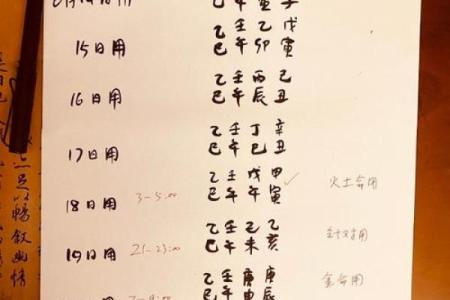 巳 午 寅 子
15日用
乙 壬 乙 戊
巳 午 卯 寅
16日用
乙 壬 丙 己
巳 午 辰 丑
17日用
乙 壬 丁 辛
巳 午 巳 丑
18日用 3-5:00
乙 壬 戊 甲
巳 午 午 寅 ✓
火土命用
19日用 21-23:00
乙 壬 己 乙
巳 午 未 亥
针对用
7-9:00
乙 壬 庚 庚
巳 午 申 辰
金命用
足以暢叙幽情